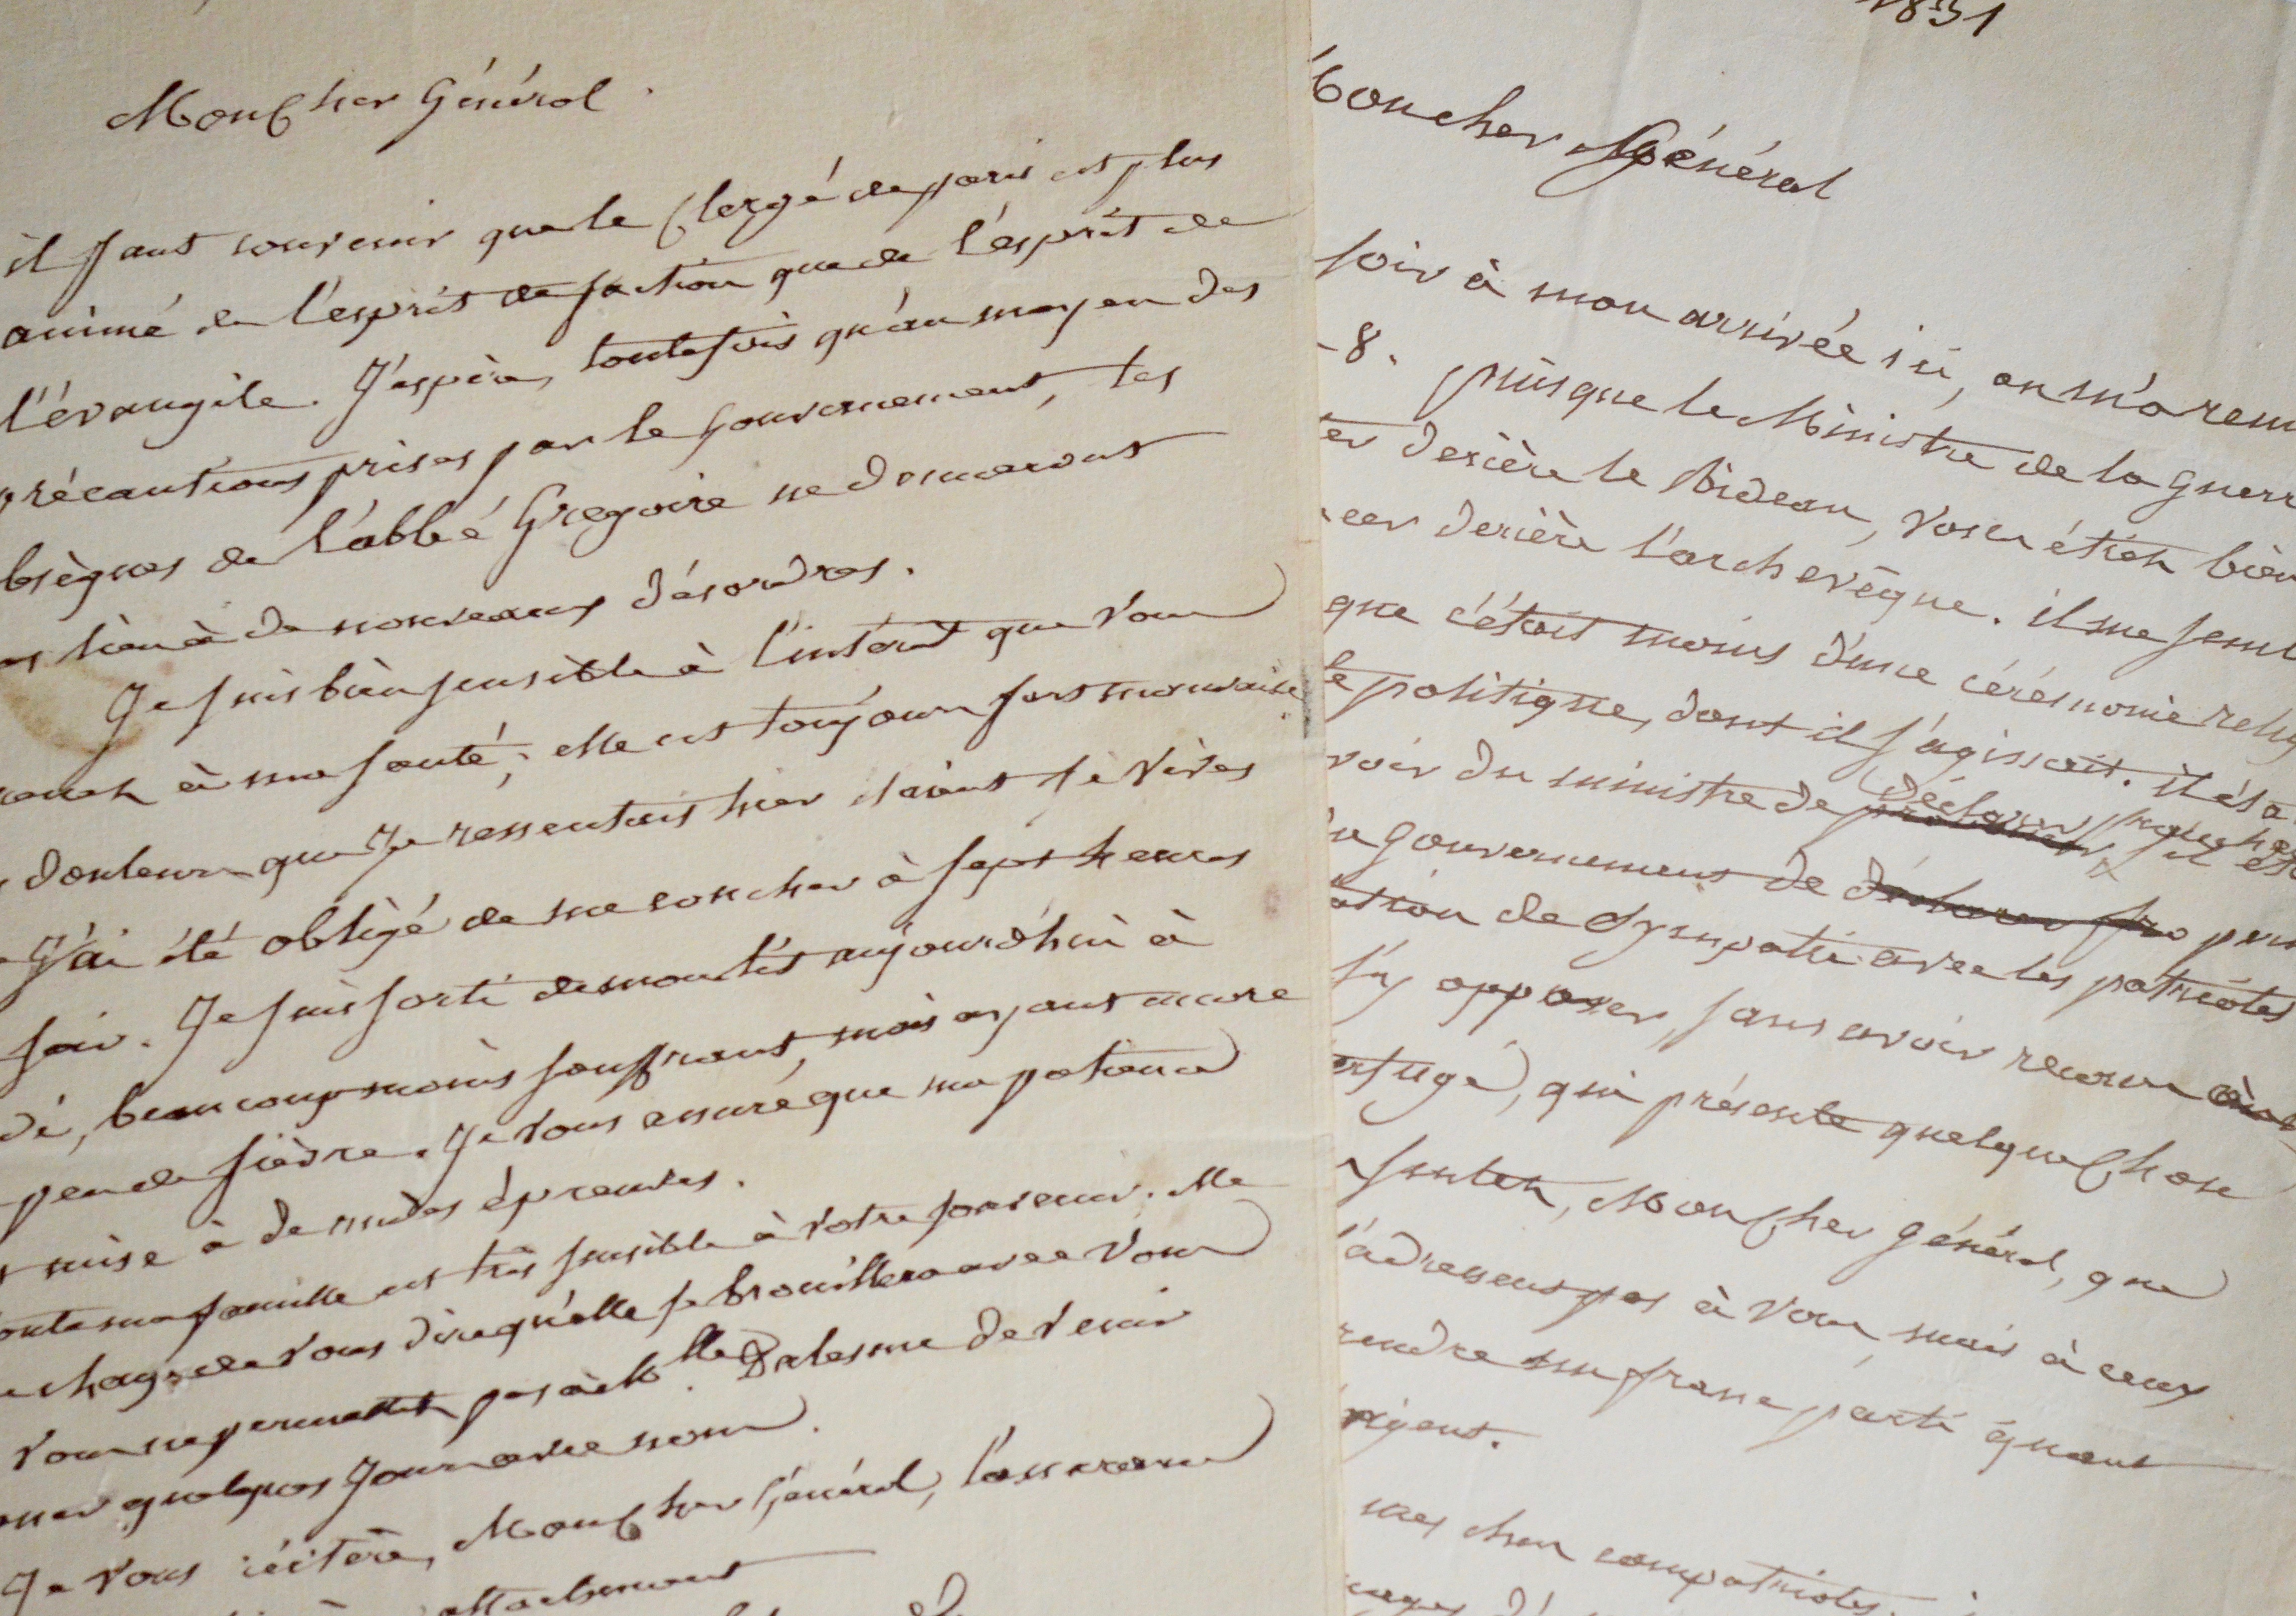 Mon Cher Général.
il faut convenir que le Clergé de paris est plus
animé de l'esprit de faction que de l'esprit de
l'évangile. J'espère, toutefois qu'au moyen des
précautions prises par le Gouvernement, les
bsèques de l'abbé Gregoire ne donneront
lieu à de nouveaux désordres.
Je suis bien sensible à l'intérêt que vous
à ma santé; elle est toujours fort mauvaise
douleurs que je ressentais hier étaient si vives
J'ai été obligé de me coucher à sept heures
soir. Je suis sorti de mon lit aujourd'hui à
di, beaucoup moins souffrant, mais ayant encore
peu de fièvre. Je vous assure que ma patience
mise à de rudes épreuves.
oute ma famille est très sensible à votre souvenir. Elle
charge de vous dire qu'elle se brouillera avec vous
vous ne permettez pas à Mlle Dalesme de venir
quelques jours avec nous.
Je vous réitère, Mon Cher Général, l'assurance
attachement
1831
Mon cher Général
soir à mon arrivée ici, on m'a remi
8. puisque le Ministre de la Guerr
derière le Rideau, vous étiez bien
derière l'archevêque. il me sembl
que c'était moins d'une cérémonie relig
politique, dont il s'agissait. il ét
voir du ministre de déclarer
gouvernement de
ation de sympathie avec les patriotes
s'y opposer, sans avoir recours
rfuge, qui présente quelque Chose
Sentez, Mon Cher général, que
s'adressent pas à vous, mais à ceux
rendre un franc parti quant
rigent.
mes chers compatriotes.